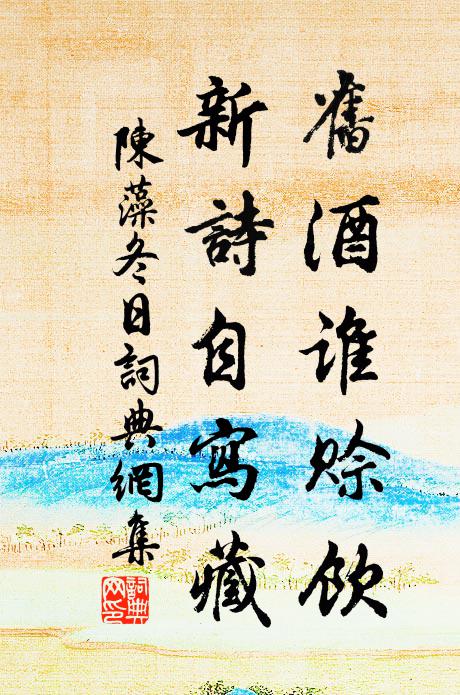 舊酒誰賒飲
新詩自寫藏
陳藻冬日詞典網集
詞典网印